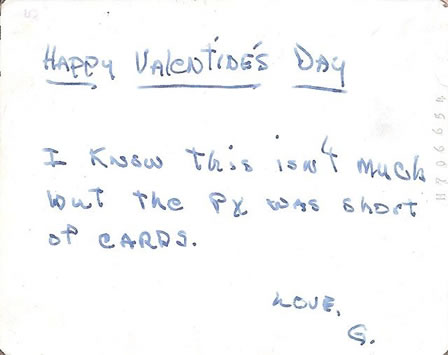 Happy Valentine's Day
I know this isn't much
but the PX was short
of cards.
Love,
G.